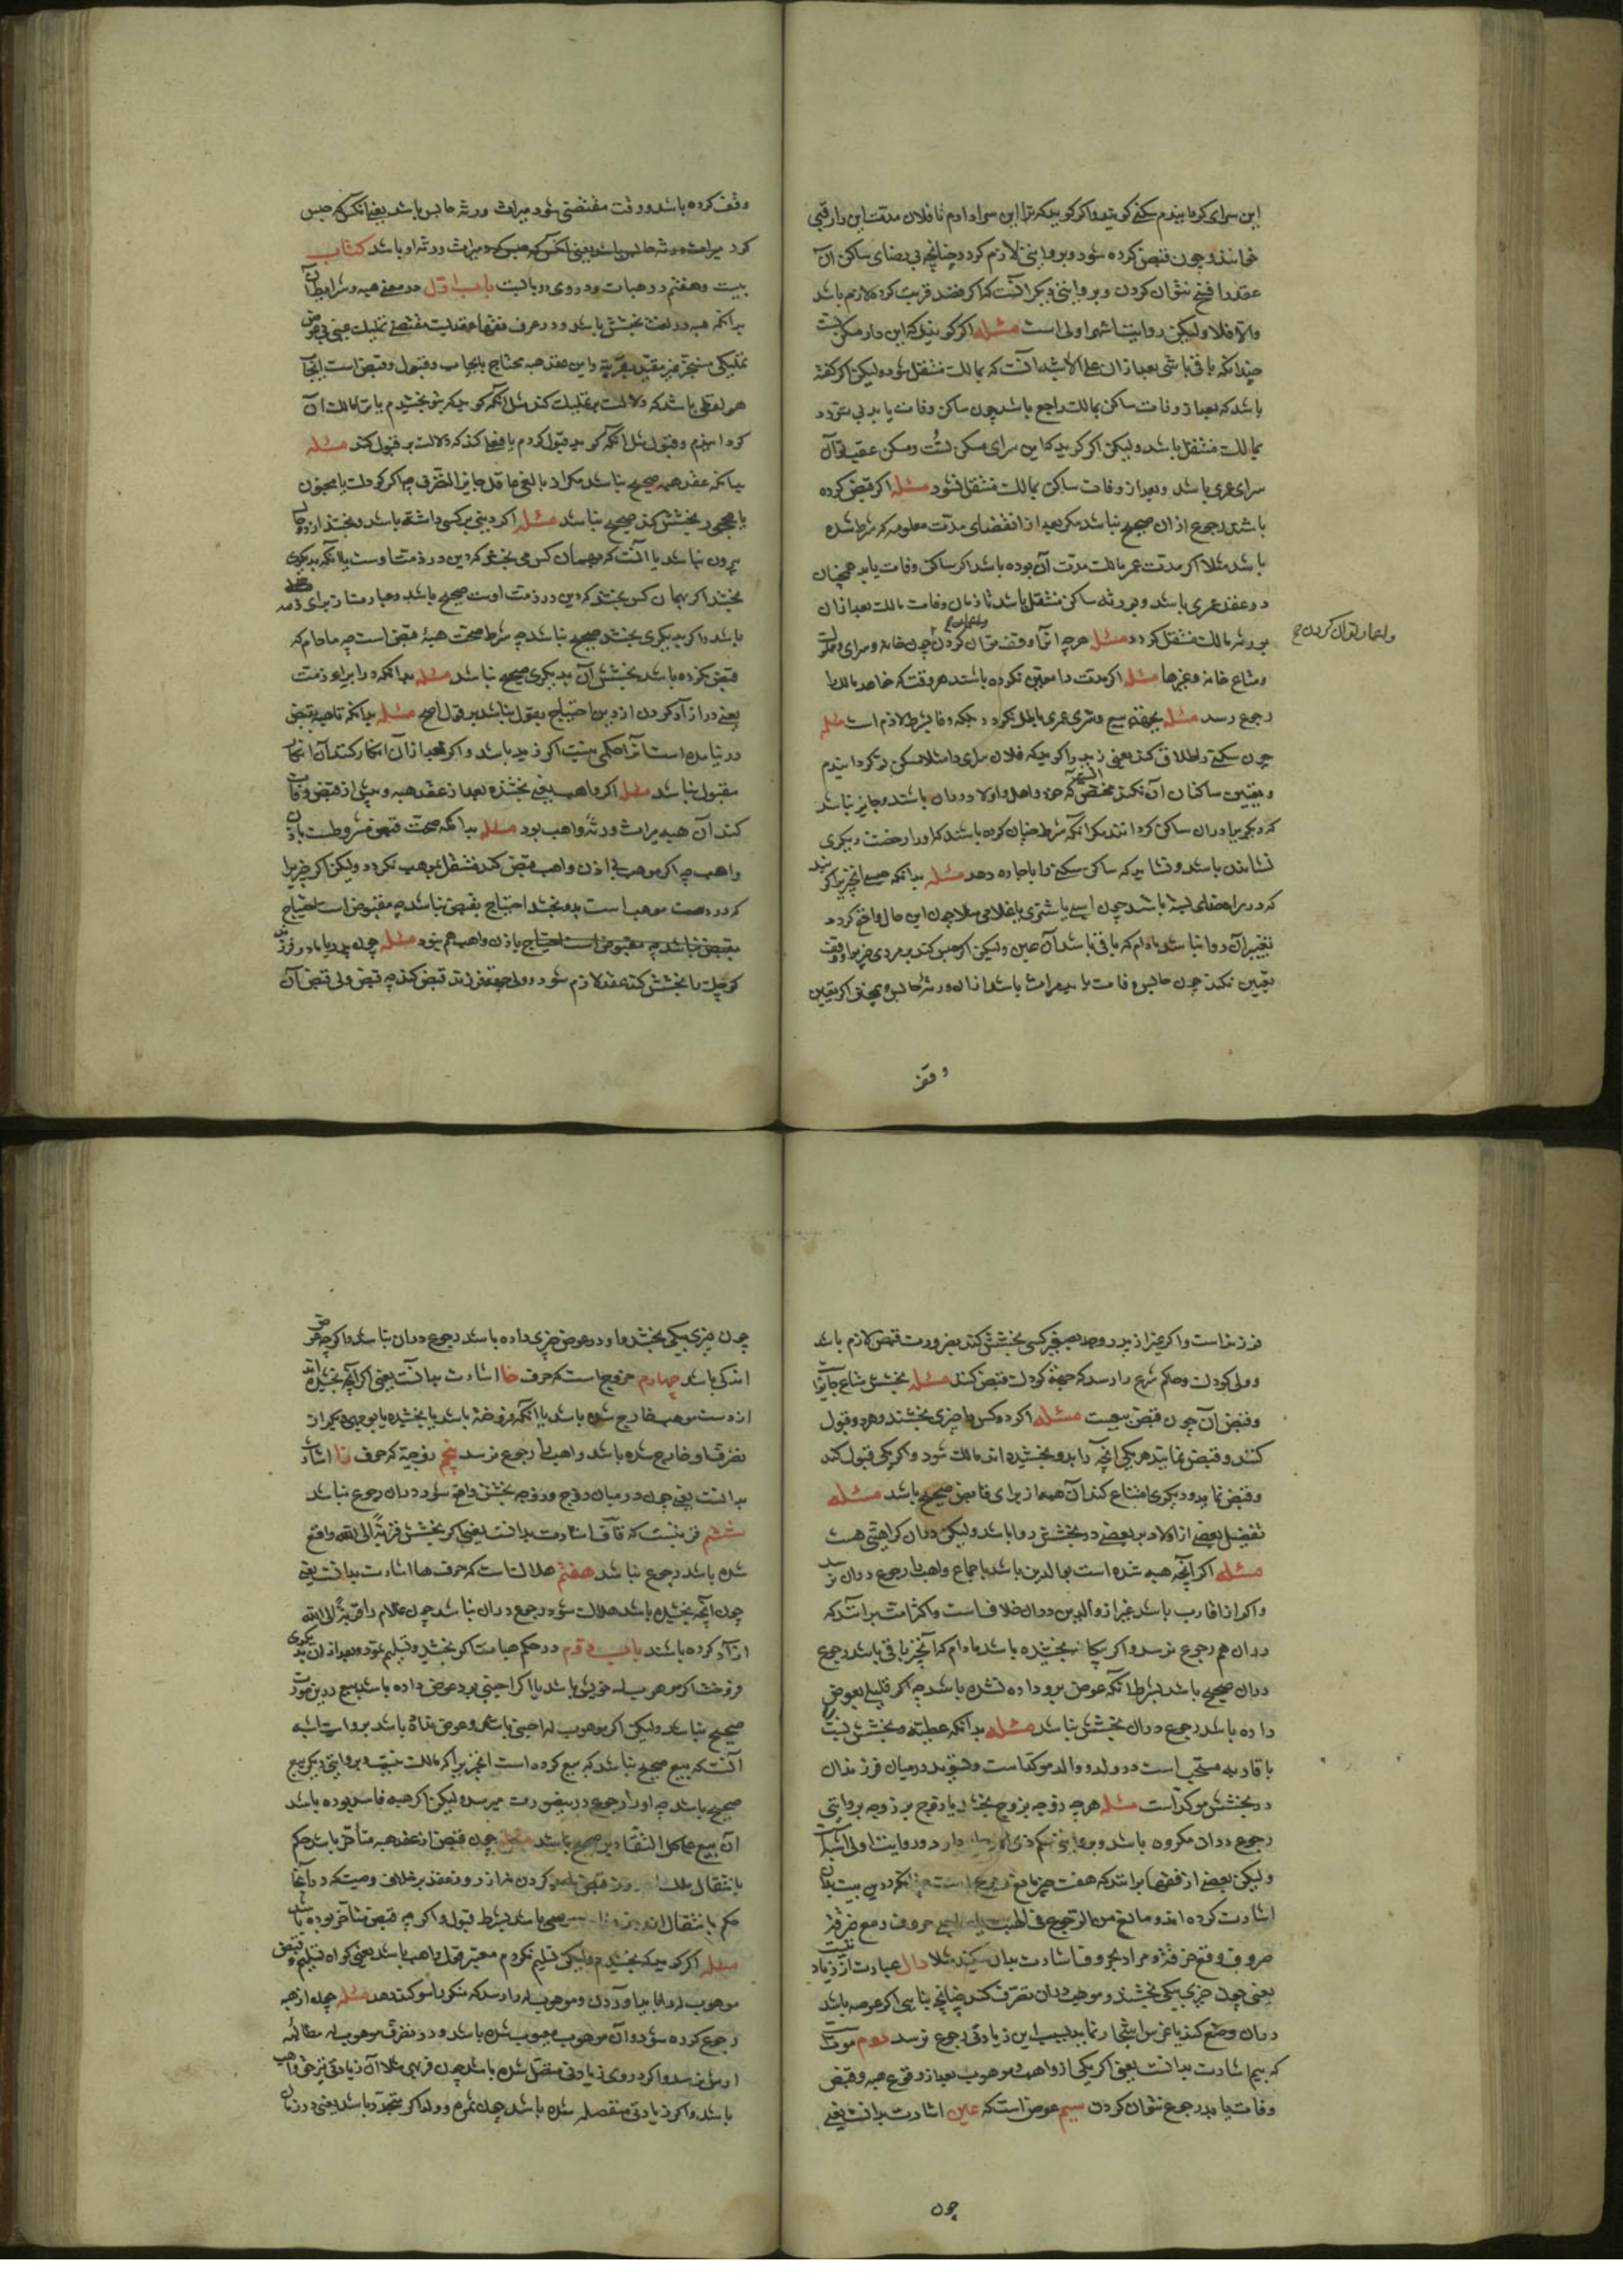 این سرای کردانیدم سکنی کویند و اکر کوید که ترا این سرا دادم تا فلان مدت این را رقبی
خوانند و چون قبض کرده شود و بروایتی لازم کردد چنانچه بی رضای ساکن آن
عقد را فسخ نتوان کردن و بروایتی دیکر آنست که اکر قصد قربت کرد لازم باشد
والا فلا و لیکن روایت اشهر اولی است مسئله اکر کوید که این دار مسکن تست
چندانکه باقی باشی بعد از آن علی الاشبه آنست که بمالک منتقل شود و لیکن اکر کفته
باشد که بعد از وفات ساکن بمالک راجع باشد چون ساکن وفات یابد بی تردد
بمالک منتقل باشد و لیکن اکر کوید که این سرای مسکن تست و مسکن عقب تو آن
سرای عمری باشد و بعد از وفات ساکن بمالک منتقل نشود مسئله اکر قبض کرده
باشد رجوع از ان صحیح نباشد مکر بعد از انقضای مدت معلومه که شرط شده
باشد مثلا اکر مدت عمر مالک مدت آن بوده باشد اکر ساکن وفات یابد همچنان
در عقد عمری باشد و بورثه ساکن منتقل باشد تا زمان وفات مالک بعد از ان
بورثه مالک منتقل کردد مسئله هرچه انرا وقف توان کردن چون خانه و سرای و مملوک
و متاع خانه و غیرها مسئله اکر مدت را معین نکرده باشند هر وقت که خواهد مالک را
رجوع رسد مسئله بجهة بیع مشتری عمری باطل نکردد بلکه وفا بشرط لازم است مسئله
چون سکنی را اطلاق کند یعنی زید را کوید که فلان سرای را مثلا مسکن تو کردانیدم
و تعیین ساکنان آن نکند مختص آنست که خود و اهل و اولاد در ان باشند و جایز نباشد
که دیکری را در ان ساکن کردانند مکر آنکه شرط چنان کرده باشند که او را رخصت دیکری
نشاندن باشد و نشاید که ساکن سکنی را باجاره دهد مسئله بدانکه حبس انچیز را کویند
که در راه خدای بسته باشد چون اسبی یا شتری یا غلامی مثلا چون این حال واقع کردد
تغییر آن روا نباشد مادام که باقی باشد آن عین و لیکن اکر حبس کند بر مردی چیزی را و وقت
تعیین نکند چون حابس وفات یابد میراث باشد از ان ورثهٔ حابس و همچنین اکر تعیین
واعمار توان کردن صح
وقف
وقف کرده باشد و وقت منقضی شود میراث ورثه حابس باشد یعنی آنکس که حبس
کرد میراث ورثه حابس باشد یعنی آنکس که حبس کرد میراث ورثه او باشد کتاب
بیست و هفتم در هبات و در وی دو بابست باب اول در معنی هبه و شرایط آن
بدانکه هبه در لغت بخشش باشد و در عرف فقها عقدیست مقتضی تملیک عینی بی عوض
تملیکی منجز غیر مقید بقربة و این عقد هبه محتاج بایجاب و قبول و قبض است ایجاب
هر لفظی باشد که دلالت بر تملیک کند مثل آنکه کوید که بتو بخشیدم یا ترا مالک آن
کردانیدم و قبول مثل آنکه کوید قبول کردم یا فعلی کند که دلالت بر قبول کند مسئله
بدانکه عقد هبه صحیح نباشد مکر از بالغی عاقل جایز التصرف چه اکر کودک یا مجنون
یا محجور بخشش کند صحیح نباشد مسئله اکر دینی بر کسی داشته باشد و بخشد از دو حال
بیرون نباشد یا آنست که بهمان کس می بخشد که دین در ذمت اوست یا آنکه بدیکری
بخشد اکر بهمان کس بخشد که دین در ذمت اوست صحیح باشد و عبارت از برای ذمه
باشد و اکر بدیکری بخشد صحیح نباشد چه شرط صحت هبهٔ قبض است چه مادام که
قبض نکرده باشد بخشش آن بدیکری صحیح نباشد مسئله بدانکه در ابراء ذمت
یعنی در آزاد کردن از دین احتیاج بقبول نباشد بر قول اصح مسئله بدانکه تا هبه بقبض
در نیامده است آنرا حکمی نیست اکر زبد باشد و اکر بعد از آن انکار کند آن انکار
مقبول نباشد مسئله اکر واهب یعنی بخشنده بعد از عقد هبه و پیش از قبض وفات
کند آن هبه میراث ورثه واهب بود مسئله بدانکه صحت قبض مشروطست باذن
واهب چه اکر موهب بی اذن واهب قبض کند منتقل بموهب نکردد و لیکن اکر چیزی را
که در دست موهب است بدو بخشد احتیاج بقبض نباشد چه مقبوض است احتیاج
بقبض نباشد چه مقبوض است احتیاج باذن واهب هم نبود مسئله چون پدر یا مادر فرزند
کوچک را بخشش کند عقد لازم شود و ولی جهة فرزند قبض کند چه قبض ولی قبض آن
فرزند است و اکر غیر از پدر و جد بصغیر کسی بخشش کند بضرورت قبض لازم باشد
و ولی کودک و حکم شرع را رسد که جهة کودک قبض کند مسئله بخشش مشاع جایز است
و قبض آن چون قبض بیعست مسئله اکر دو کس را چیزی بخشند و هر دو قبول
کنند و قبض نمایند هر یکی آنچه را بدو بخشیده اند مالک شود و اکر یکی قبول کند
و قبض نماید و دیکری امتناع کند آن هبه از برای قابض صحیح باشد مسئله
تفضیل بعضی از اولاد بر بعضی در بخشش روا باشد و لیکن در ان کراهتی هست
مسئله اکر آنچه هبه شده است بوالدین باشد باجماع واهب را رجوع در ان نرسد
و اکر از اقارب باشد غیر از والدین در ان خلافست و اکثر امت بر انند که
در ان هم رجوع نرسد و اکر ببیکانه بخشیده باشد مادام که آنچیز باقی باشد رجوع
در ان صحیح باشد بشرط آنکه عوض برو داده نشده باشد چه اکر قلیلی بعوض
داده باشد رجوع در ان بخشش نباشد مسئله بدانکه عطیه و بخشش نسبت
باقارب مستحب است و در ولد و والد موکد است و تسویه در میان فرزندان
در بخشش موکد است مسئله هرچه زوجه بزوج بخشد یا زوج بر زوجه بروایتی
رجوع در ان مکروه باشد و بروایتی حکم ذی الارحام دارد و روایت اولی اشبه است
و لیکن بعضی از فقها بر انند که هفت چیز مانع رجوع است چنانکه در این بیت بدان
اشارت کرده اند و مانع من الرجوع فی الهبة یا صاحبی حروف دمع خزقه
حروف دمع خزقه و مراد بحروف اشارت بیان میکنند مثلا دال عبارت از زیاد تیست
یعنی چون چیزی بیکی بخشند و موهب در ان تصرف کند چنانچه بنایی اکر عرصه باشد
در ان وضع کند یا غرس اشجار نماید بسبب این زیادتی رجوع نرسد دوم موتست
که میم اشارت بدانست یعنی اکر یکی از واهب و موهوب بعد از وقوع هبه و قبض
وفات یابد رجوع نتوان کردن سیم عوض است که عین اشارت بدانست یعنی
چون
چون چیزی بیکی بخشد و او در عوض چیزی داده باشد رجوع در ان نباشد و اکرچه عوض
اندکی باشد چهارم خروجست که حرف خا اشارت بدانست یعنی اکر آنچه بخشیده اند
از دست موهب خارج شده باشد یا آنکه فروخته باشد یا بخشیده یا بوجهی دیکر از
تصرف او خارج شده باشد واهب را رجوع نرسد پنجم زوجیة که حرف زا اشارت
بدانست یعنی چون در میان زوج و زوجه بخشش واقع شود در ان رجوع نباشد
ششم قربتست که قاف اشارت بدانست یعنی اکر بخشش قربةً الی الله واقع
شده باشد رجوع نباشد هفتم هلاکست که حرف ها اشارت بدانست یعنی
چون آنچه بخشیده باشد هلاک شود رجوع در ان نباشد چون غلام را قربةً لی الله
آزاد کرده باشد باب دوم در حکم هبات اکر بخشید و تسلیم نمود و بعد از ان بدیکری
فروخت اکر موهوب له خویش باشد یا اکر اجنبی بود عوض داده باشد بیع درین صورت
صحیح نباشد و لیکن اکر موهوب له اجنبی باشد و عوض نداده باشد بروایت اشبه
آنست که بیع صحیح نباشد که بیع کرده است آنچیز را که مالک نیست و بروایتی دیکر بیع
صحیح باشد چه او را رجوع درین صورت میرسد و لیکن اکر هبه فاسد بوده باشد
آن بیع علی کل التقادیر صحیح باشد مسئله چون قبض از عقد هبه متأخر باشد حکم
بانتقال ملک از روز قبض باید کردن نه از روز عقد بر خلاف وصیت که در آنجا
حکم بانتقال از روز وفات موصی باشد بشرط قبول و اکرچه قبض متأخر بوده باشد
مسئله اکر کوید که بخشیدم و لیکن تسلیم نکردم معتبر قول واهب باشد یعنی کواه تسلیم و قبض
موهوب له را باید آوردن و موهوب له را رسد که منکر را سوکند دهد مسئله چون از هبه
رجوع کرده شود و آن موهوب معیوب شده باشد و در تصرف موهوب له مطالبه
ارش نرسد و اکر در وی زیادتی متصل شده باشد چون فربهی مثلا آن زیادتی نیز حق واهب
باشد و اکر زیادتی منفصله شده باشد چون ثمره و ولد اکر متجدد باشد یعنی در زمان